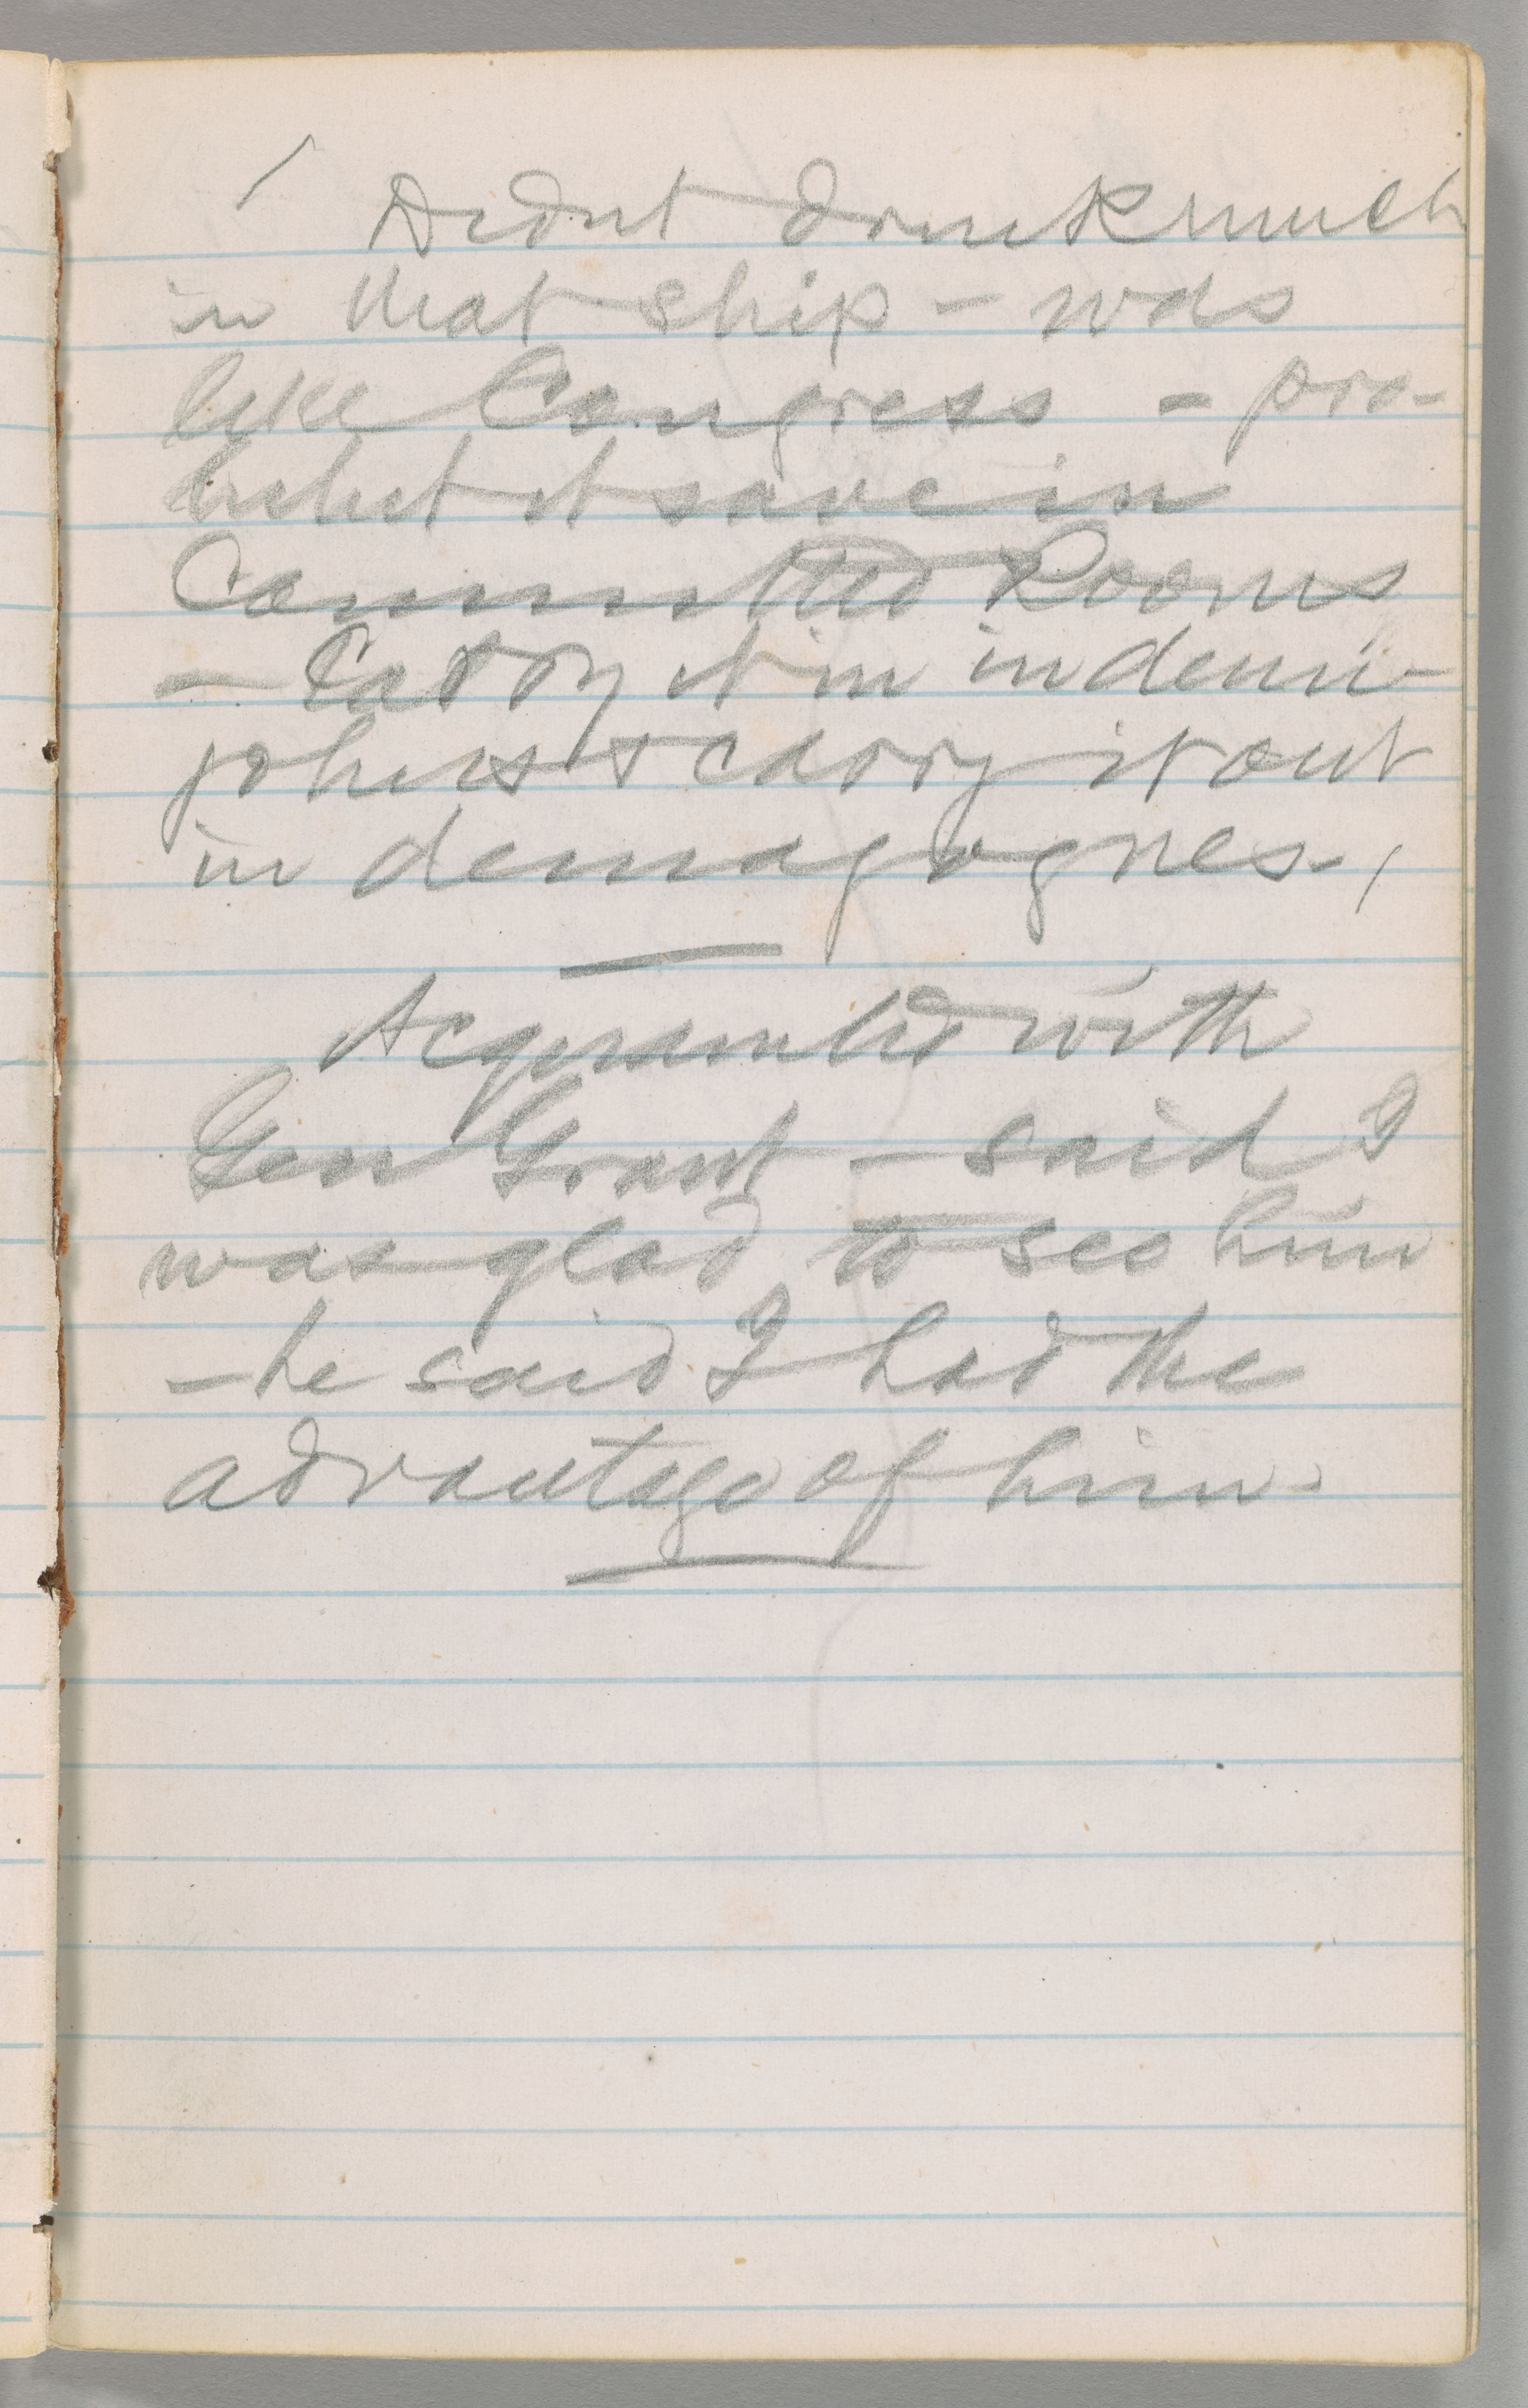 Didnt drink much
in that ship – was
like Congress – pro-
hibit it save in
Committee Rooms
– Carry it in in demi-
johns & carry it out
in demagogues.
Acquainted with
Gen Grant – said I
was glad to see him
– he said I had the
advantage of him.